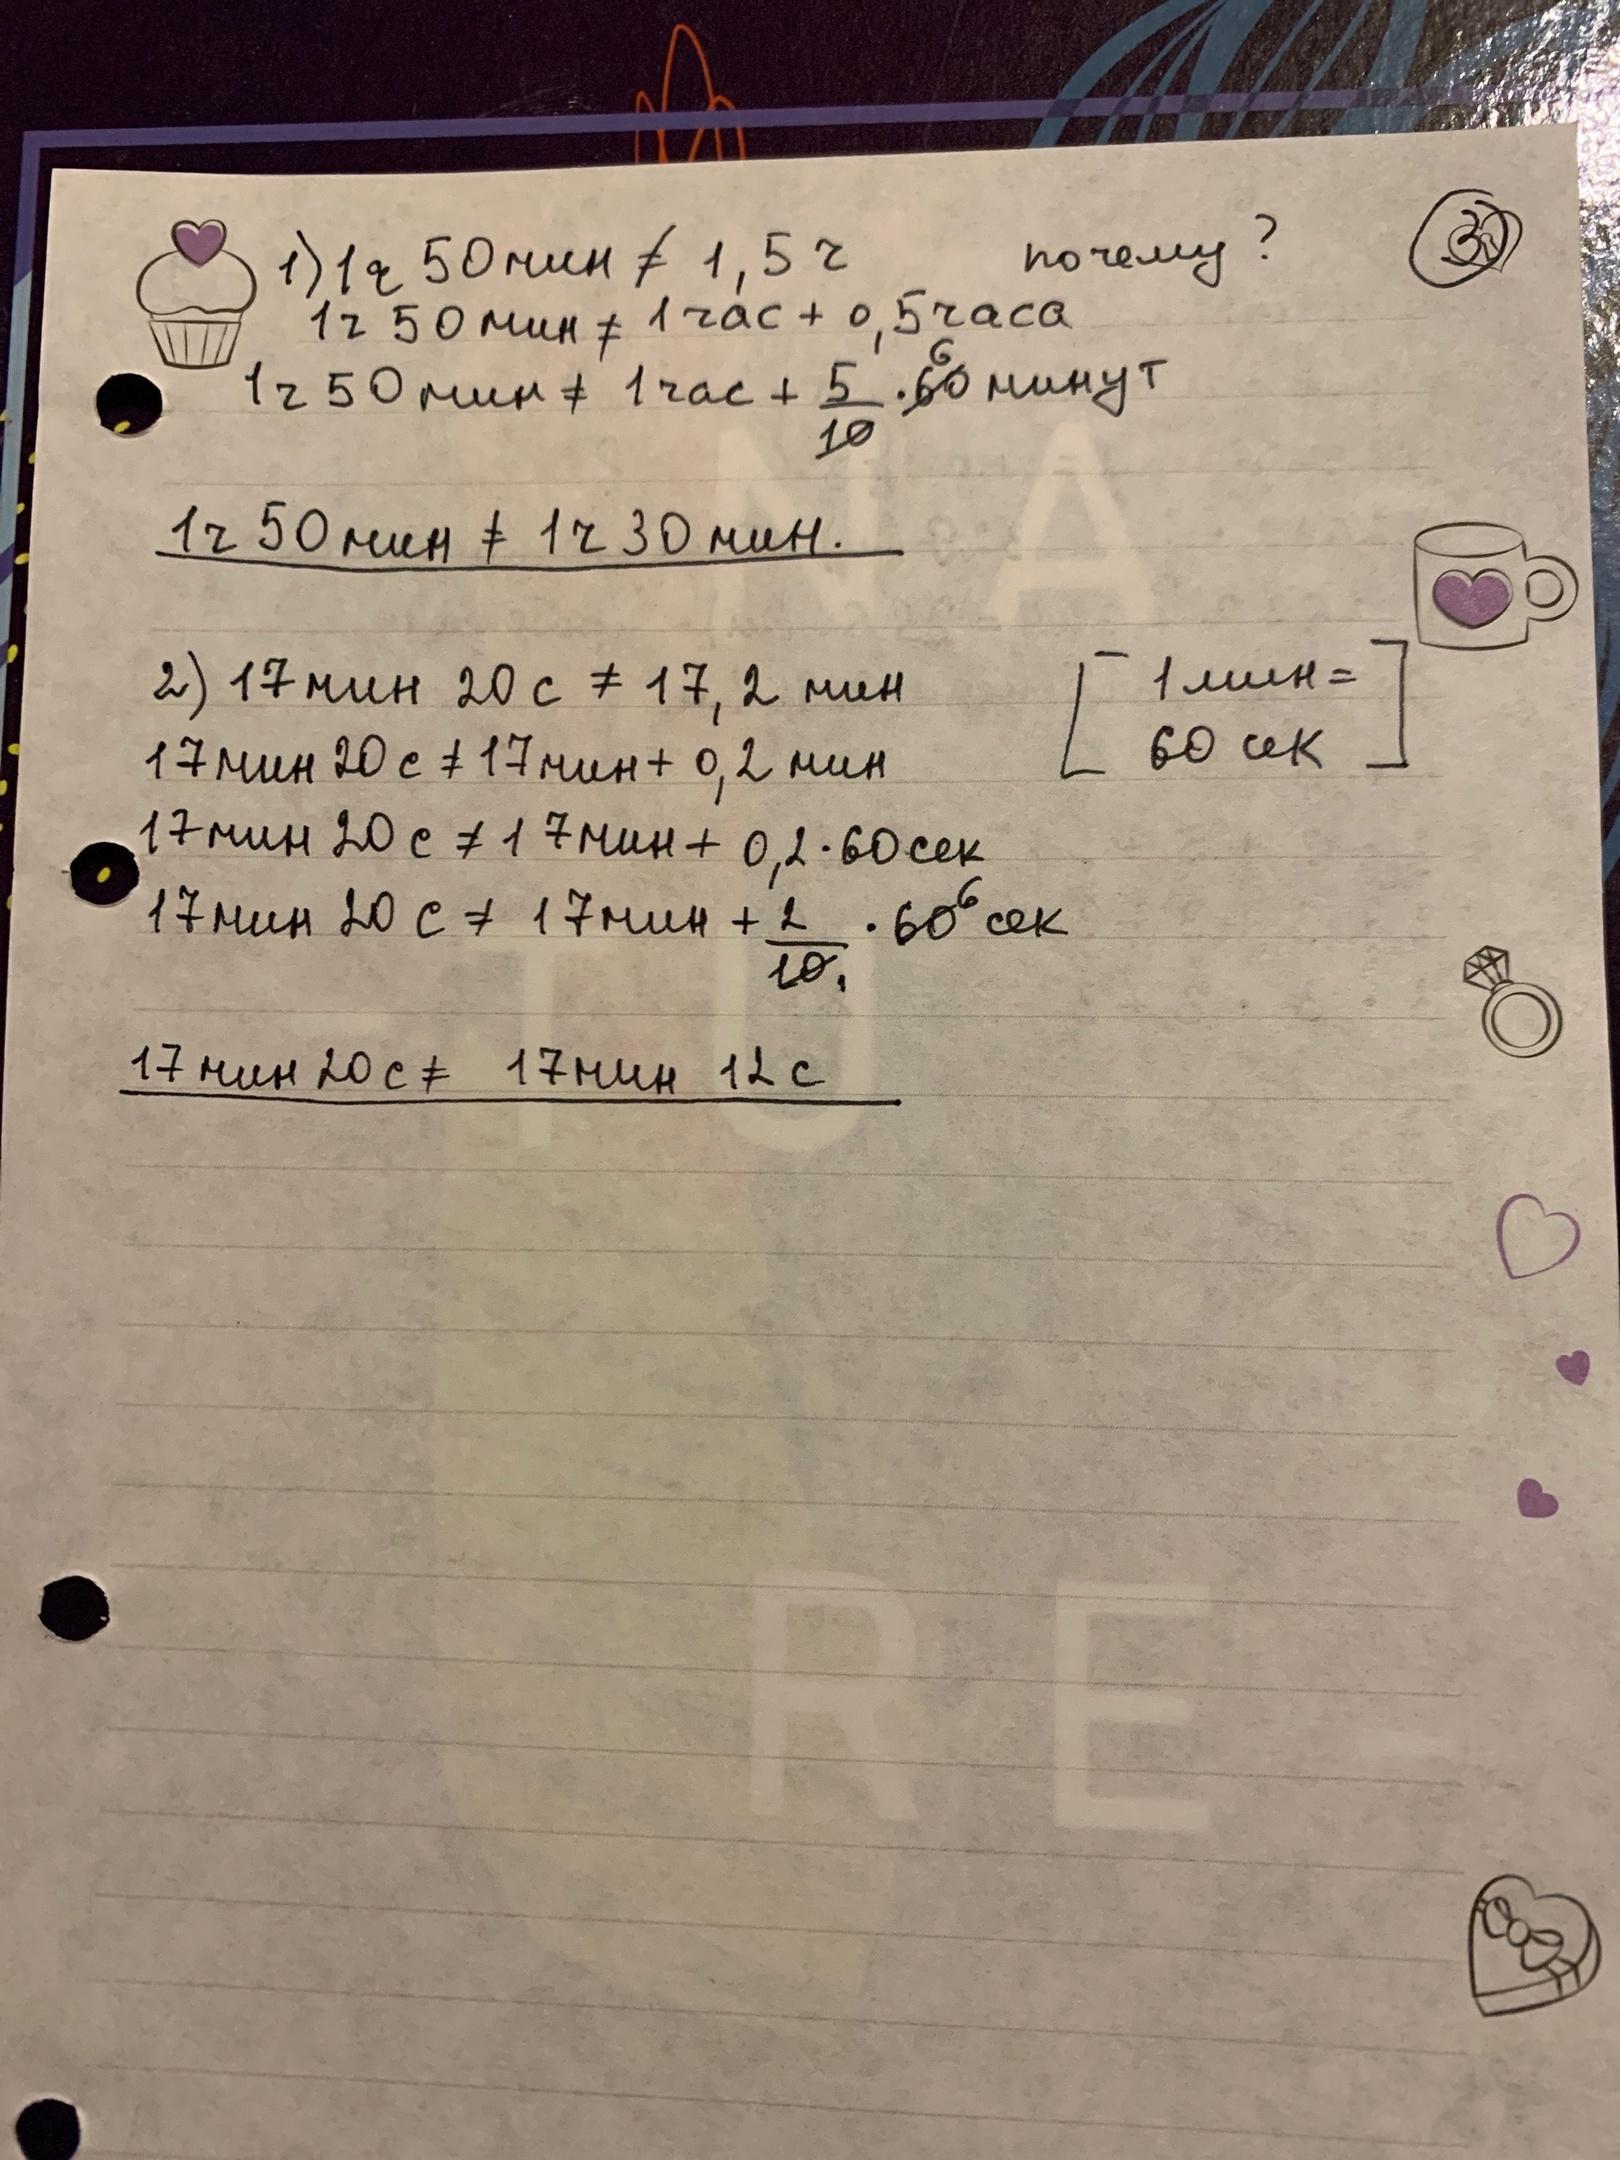 1) 1ч 50мин ≠ 1,5ч почему?
1ч 50мин ≠ 1час + 0,5часа
1ч 50мин ≠ 1час + 5/10 · 60⁶ минут
1ч 50мин ≠ 1ч 30мин.
2) 17мин 20с ≠ 17,2 мин
[1мин =
60 сек]
17мин 20с ≠ 17мин + 0,2 мин
17мин 20с ≠ 17мин + 0,2·60сек
17мин 20с ≠ 17мин + 2/10 · 60⁶ сек
17мин 20с ≠ 17мин 12с
NA
TU
RE-